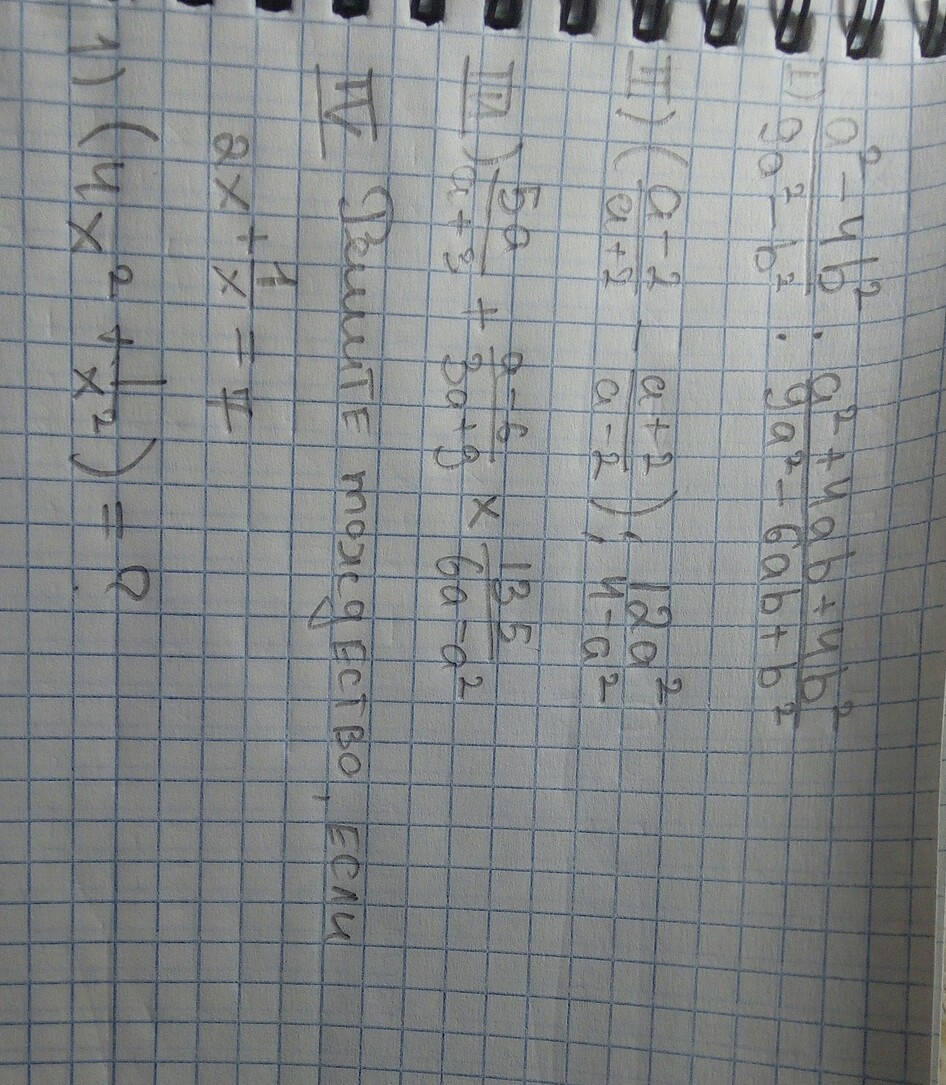 I) a² - 4b² / 9a² - b² : a² + 4ab + 4b² / 9a² - 6ab + b²
II) (a - 2 / a + 2 - a + 2 / a - 2) : 12a² / 4 - a²
III) 5a / a + 3 + a - 6 / 3a + 9 × 135 / 6a - a²
IV Решите тождество, если
2x + 1/x = V
1) (4x² + 1/x²) = ?